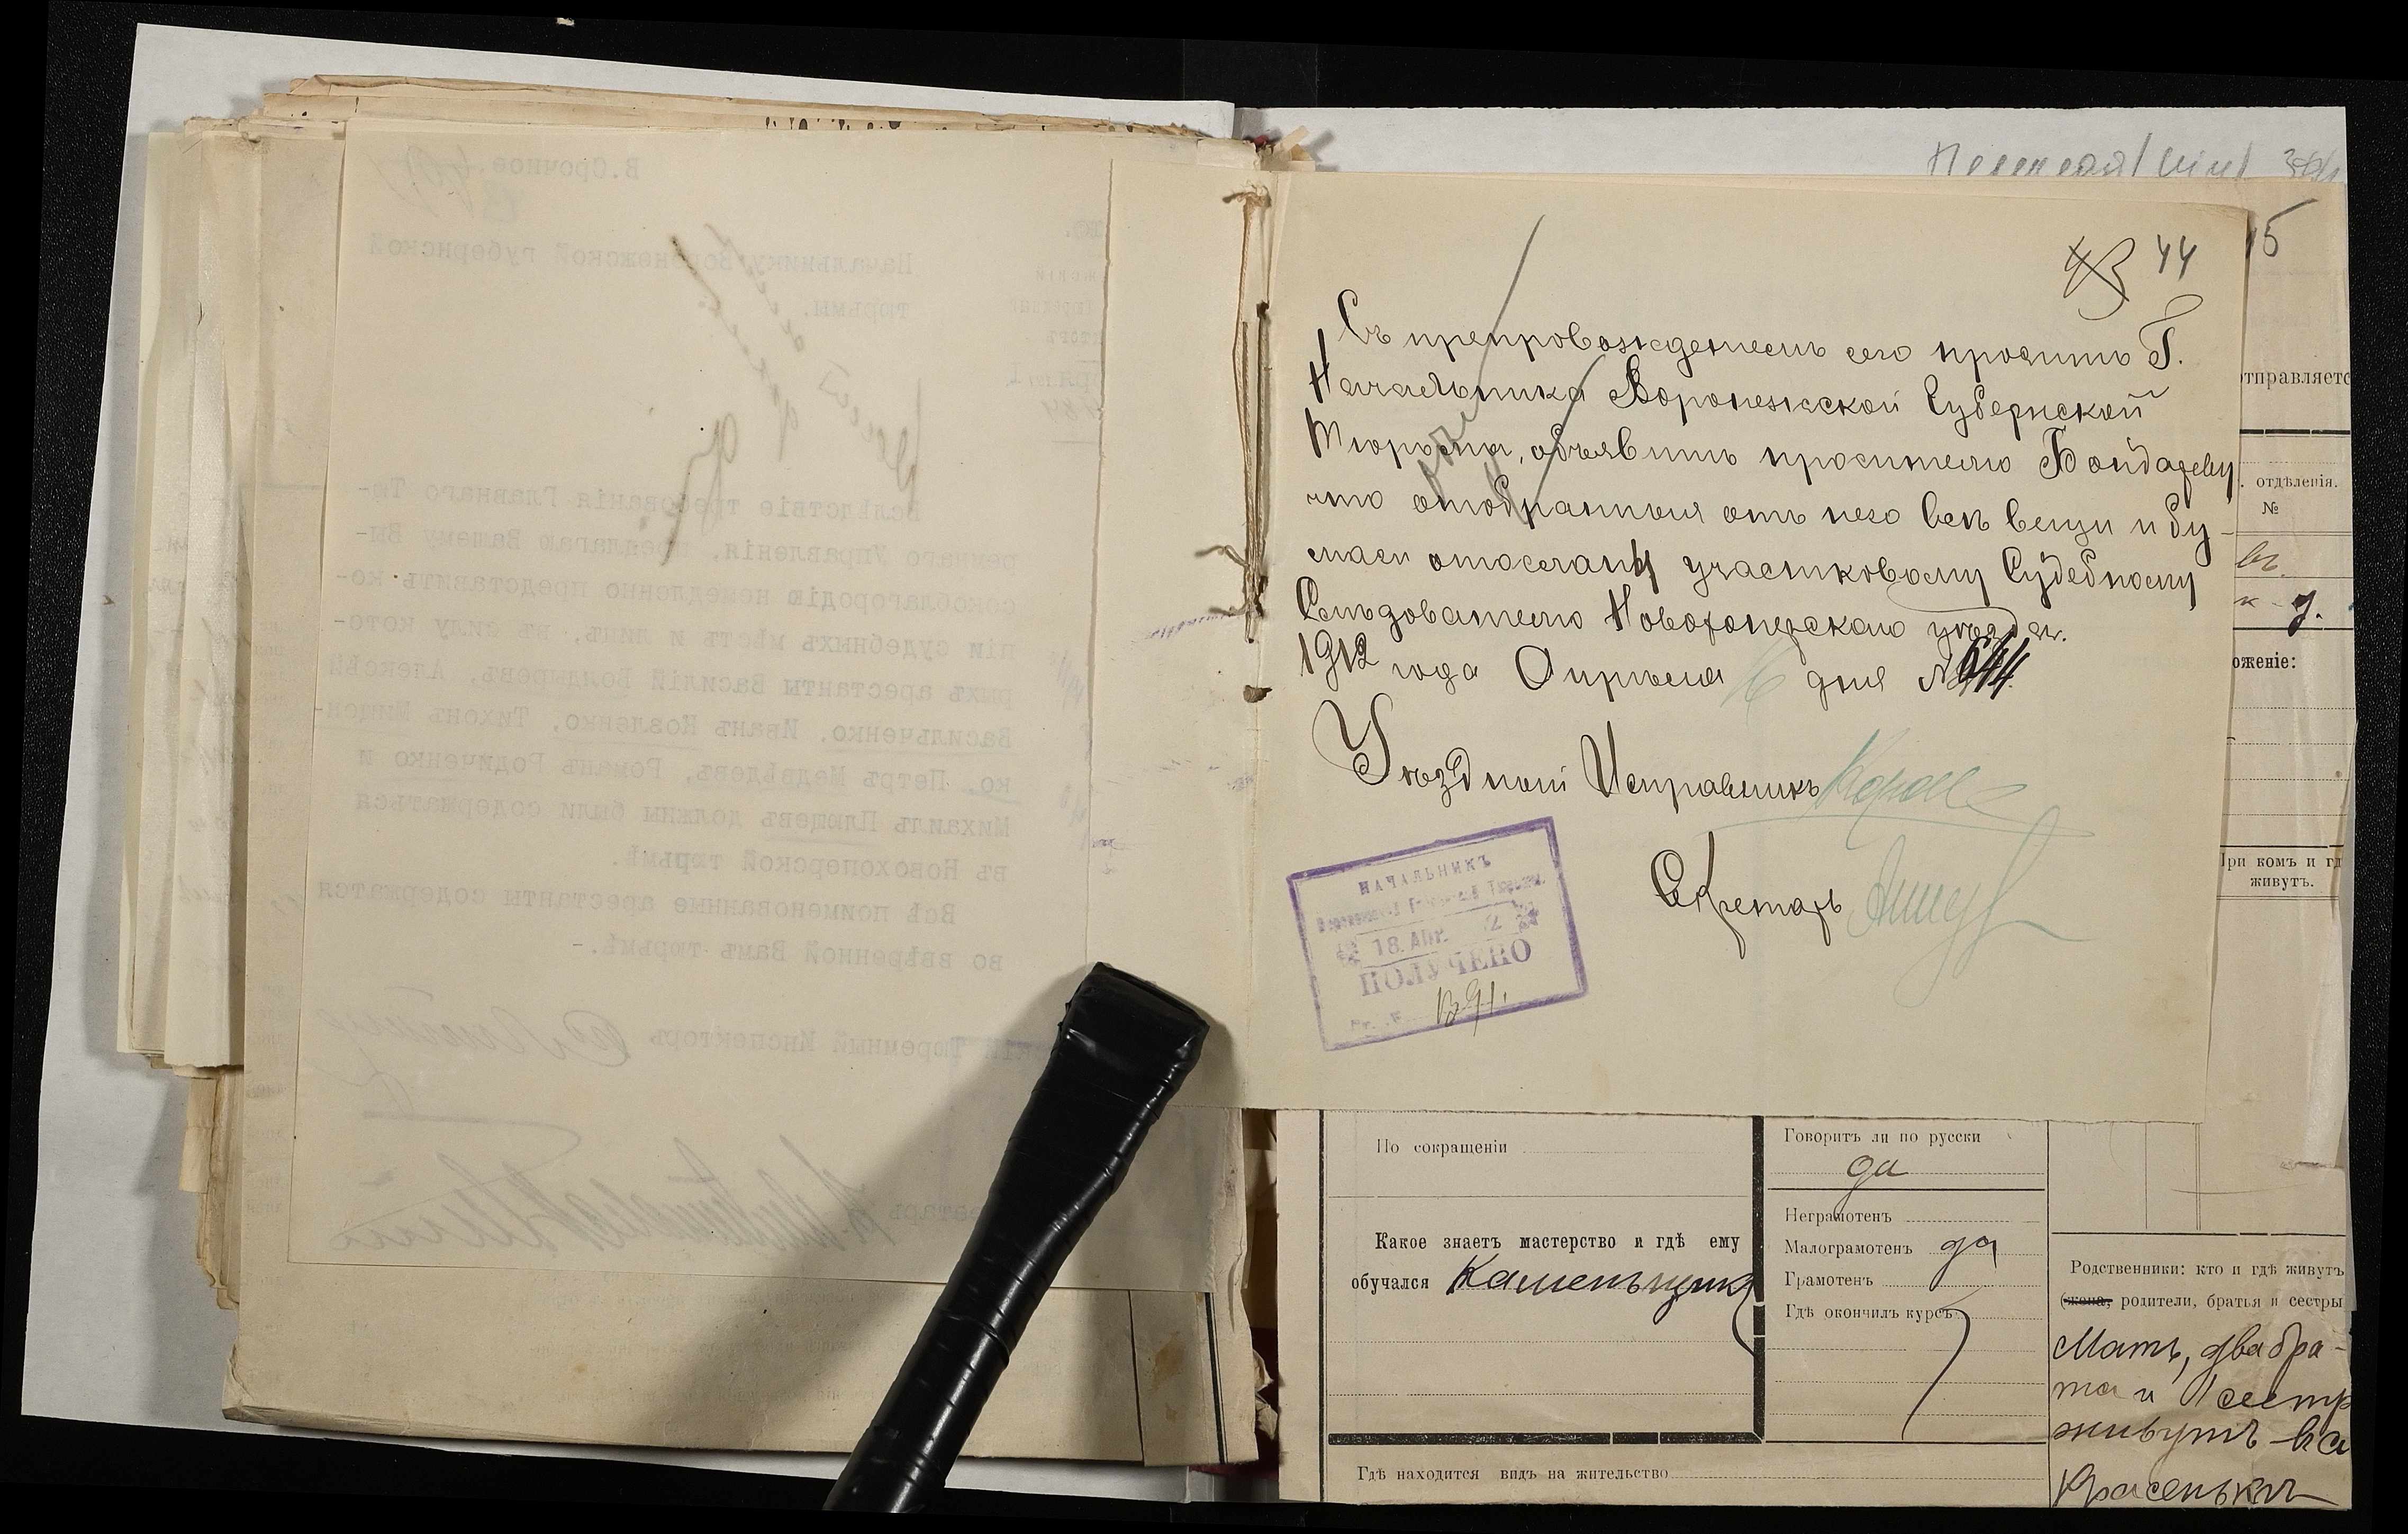 43 44
Съ препровожденіемъ сего просить Г.
Начальника Воронежской Губернской
Тюрьмы, объявить просителю Бондареву
что отобранныя отъ него всѣ вещи и бу-
маги отосланы участковому Судебному
Слѣдователю Новохоперскаго уѣзда.
1912 года Апрѣля 16 дня № 644
Уѣздный Исправникъ
Секретарь
НАЧАЛЬНИКЪ
Воронежской Губернской Тюрьмы.
18. АПР. 12
ПОЛУЧЕНО
1391.
15
отправляетс
отдѣленія.
№
оженіе:
При комъ и гд
живутъ.
По сокращеніи
Какое знаетъ мастерство и гдѣ ему
обучался Каменьщикъ
Говоритъ ли по русски
да
Неграмотенъ
Малограмотенъ да
Грамотенъ
Гдѣ окончилъ курсъ
Гдѣ находится видъ на жительство
Родственники: кто и гдѣ живутъ
(жена, родители, братья и сестры
Мать, два бра-
та и сестр
живутъ въ с
Красенькъ
В.Срочное.
Начальнику Воронежской губернской
тюрьмы.
Вслѣдствіе требованія Главнаго Тю-
ремнаго Управленія, предлагаю Вашему Вы-
сокоблагородію немедленно представить ко-
піи судебныхъ мѣстъ и лицъ, въ силу кото-
рыхъ арестанты Василій Болдыревъ, Алексѣй
Васильченко, Иванъ Козленко, Тихонъ Мищен-
ко, Петръ Медвѣдевъ, Романъ Родиченко и
Михаилъ Плющевъ должны были содержаться
въ Новохоперской тюрьмѣ.
Всѣ поименованные арестанты содержатся
во ввѣренной Вамъ тюрьмѣ.-
Тюремный Инспекторъ